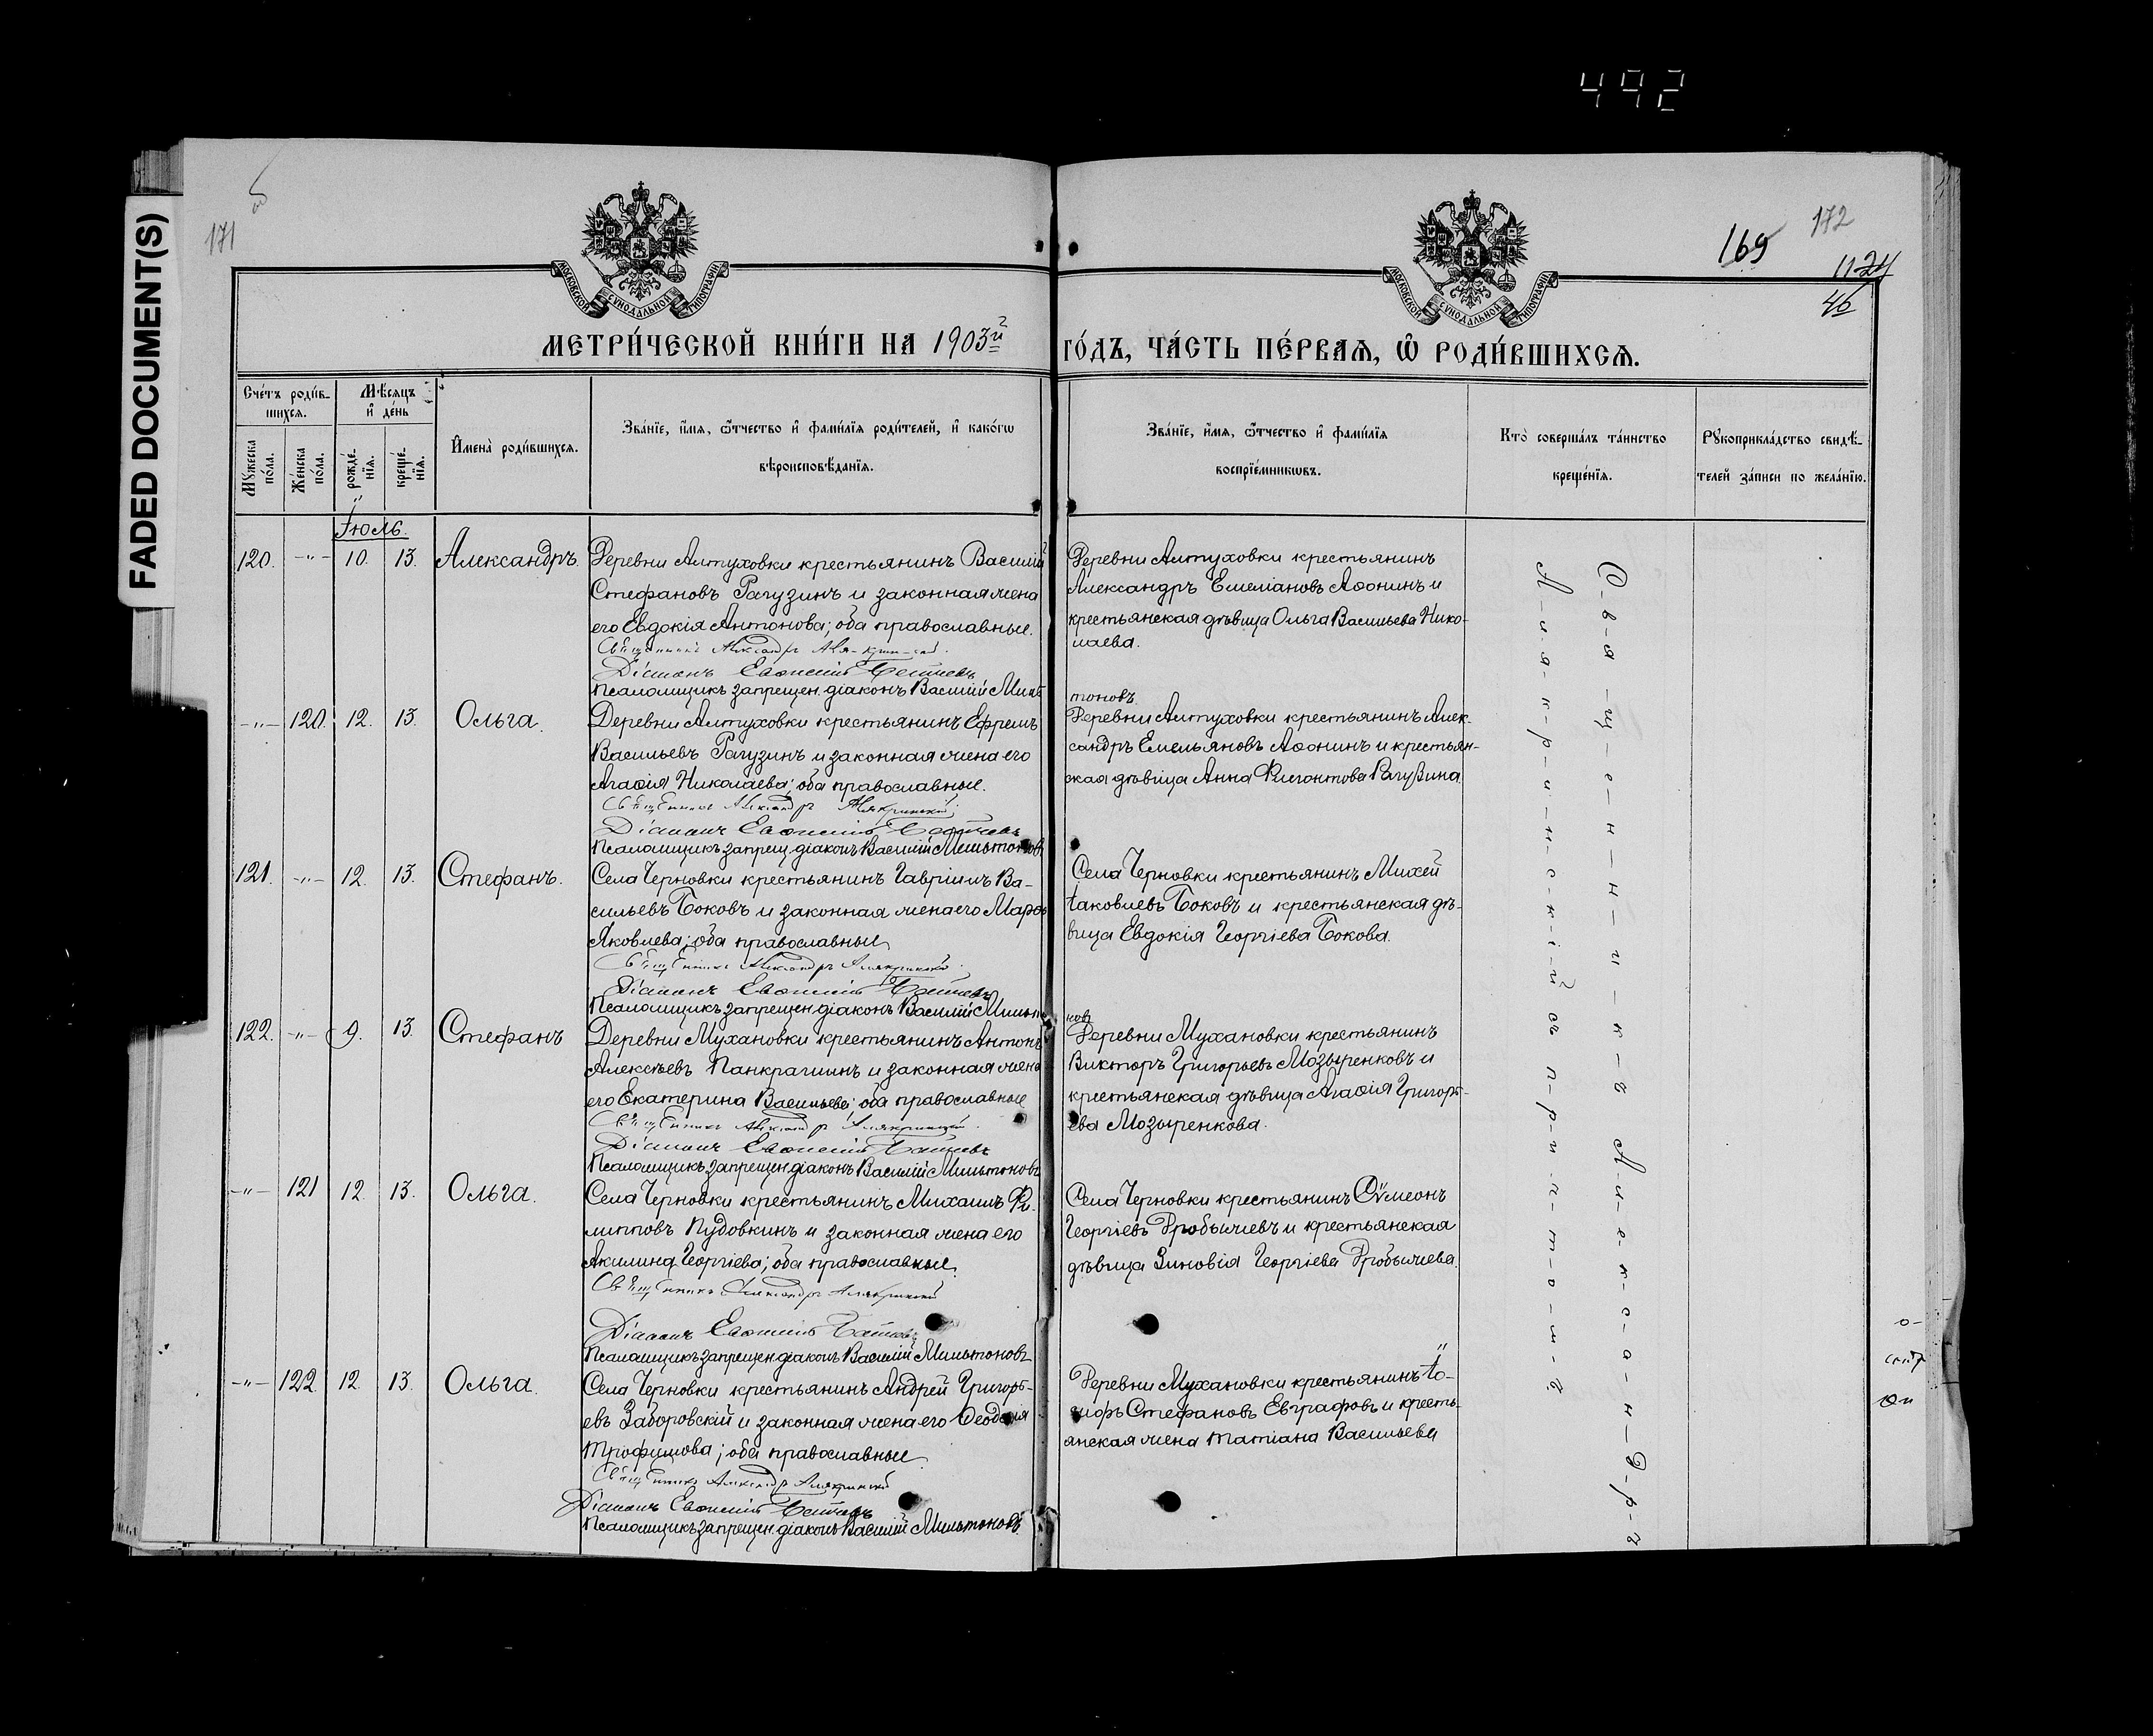 492
FADED DOCUMENT(S)
171
169
172
46
МОСКОВСКОЙ СѴНОДАЛЬНОЙ ТИПОГРАФІИ
МОСКОВСКОЙ СѴНОДАЛЬНОЙ ТИПОГРАФІИ
МЕТРИ́ЧЕСКОЙ КНИ́ГИ НА 1903й ГО́ДЪ, ЧА́СТЬ ПЕ́РВАѦ, Ѡ҆ РОДИ́ВШИХСѦ.
Сче́тъ роди́в-
шихсѧ.
Мѣ́сѧцъ
и҆ де́нь
Мꙋ́жеска по́ла.
Же́нска по́ла.
рожде́-
нїѧ.
креще́-
нїѧ.
И҆мена̀ роди́вшихсѧ.
Зва́нїе, и҆́мѧ, ѻ҆́тчество и҆ фами́лїѧ роди́телей, и҆ како́гѡ
вѣроисповѣ́данїѧ.
Зва́нїе, и҆́мѧ, ѻ҆́тчество и҆ фами́лїѧ
воспрїе́мникѡвъ.
Кто̀ соверша́лъ та́инство
креще́нїѧ.
Рꙋкоприкла́дство свидѣ́-
телей за́писи по жела́нїю.
Іюль.
120. -"- 10. 13. Александръ.
Деревни Алтуховки крестьянинъ Василій
Стефановъ Рагузинъ и законная жена
его Евдокія Антонова; оба православные.
Священникъ Александръ Аля-крин-скій.
Діаконъ Евѳимій
Псаломщикъ запрещен. діаконъ Василій Мильтоновъ
Деревни Алтуховки крестьянинъ
Александръ Емеліановъ Аѳонинъ и
крестьянская дѣвица Ольга Васильева Нико-
лаева.
-"- 120. 12. 13. Ольга.
Деревни Алтуховки крестьянинъ Ефремъ
Васильевъ Рагузинъ и законная жена его
Агаѳія Николаева; оба православные.
Священникъ Александръ Алякринскій.
Діаконъ Евѳимій
Псаломщикъ запрещ. діаконъ Василій Мильтоновъ
Деревни Алтуховки крестьянинъ Алек-
сандръ Емельяновъ Аѳонинъ и крестьян-
ская дѣвица Анна Рагузина.
121. -"- 12. 13. Стефанъ.
Села Черновки крестьянинъ Гавріилъ Ва-
сильевъ Боковъ и законная жена его Марѳа
Яковлева; оба православные
Священникъ Александръ Алякринскій.
Діаконъ Евѳимій
Псаломщикъ запрещен. діаконъ Василій Мильтоновъ
Села Черновки крестьянинъ Михей
Іаковлевъ Боковъ и крестьянская дѣ-
вица Евдокія Георгіева Бокова.
122. -"- 9. 13. Стефанъ
Деревни Мухановки крестьянинъ Антонъ
Алексѣевъ Панкрашинъ и законная жена
его Екатерина Васильева; оба православные
Священникъ Александръ Алякринскій.
Діаконъ Евѳимій
Псаломщикъ запрещен. діаконъ Василій Мильтоновъ
Деревни Мухановки крестьянинъ
Викторъ Григорьевъ Мозыренковъ и
крестьянская дѣвица Агаѳія Григорь-
ева Мозыренкова.
-"- 121 12. 13. Ольга.
Села Черновки крестьянинъ Михаилъ Фи-
липповъ Пудовкинъ и законная жена его
Акилина Георгіева; оба православные.
Священникъ Александръ Алякринскій
Діаконъ Евѳимій
Псаломщикъ запрещен. діаконъ Василій Мильтоновъ
Села Черновки крестьянинъ Сѵмеонъ
Георгіевъ Дробычевъ и крестьянская
дѣвица Зиновія Георгіева Дробычева.
-"- 122. 12. 13. Ольга.
Села Черновки крестьянинъ Андрей Григорь-
евъ Заборовскій и законная жена его Ѳеодосія
Трофимова; оба православные.
Священникъ Александръ Алякринскій
Діаконъ Евѳимій
Псаломщикъ запрещен. діаконъ Василій Мильтоновъ
Деревни Мухановки крестьянинъ Іо-
сифъ Стефановъ Евграфовъ и кресть-
янская жена Татіана Васильева
С-вя-щ-е-н-н-и-к-ъ А-л-е-к-с-а-н-д-р-ъ
А-л-я-к-р-и-н-с-к-і-й